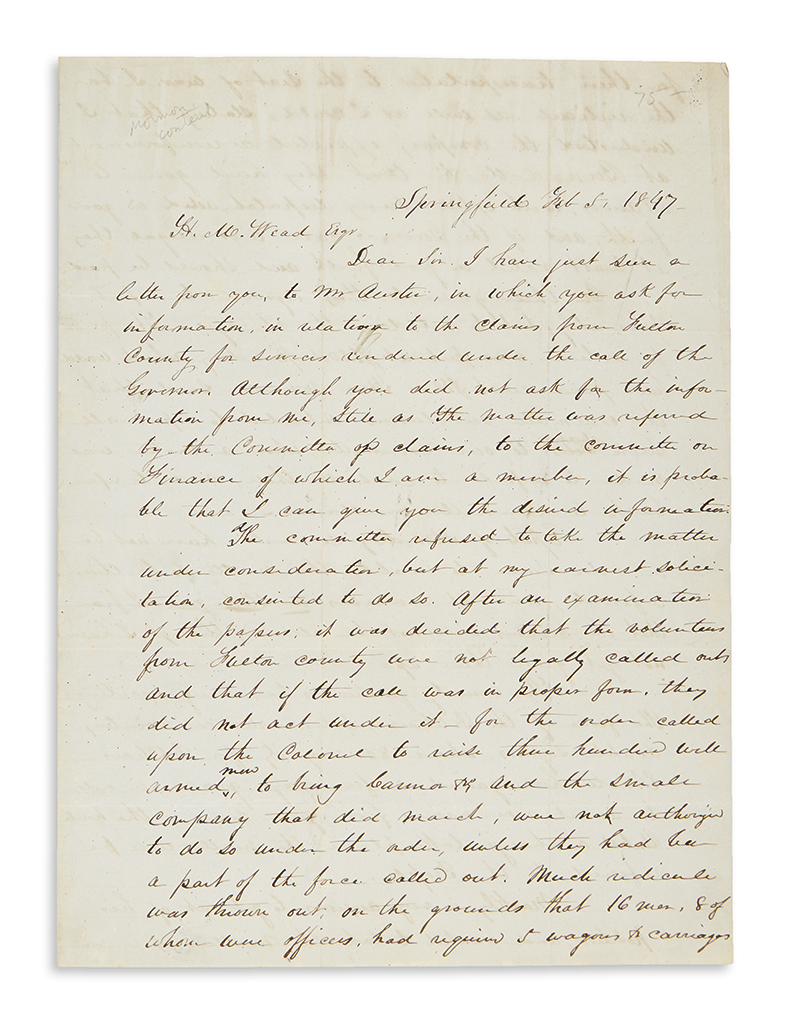 75
Mormon
content
Springfield Feb 8, 1847
H. M. Wead Esqr
Dear Sir. I have just seen a
letter from you, to Mr Auster, in which you ask for
information, in relation to the claims from Fulton
County for services rendered under the call of the
Governor. Although you did not ask for the infor-
mation from me, still as the matter was referred
by the Committee of claims, to the committee on
Finance of which I am a member, it is proba-
ble that I can give you the desired information.
The committee refused to take the matter
under consideration, but at my earnest solici-
tation, consented to do so. After an examination
of the papers, it was decided that the volunteers
from Fulton county were not legally called out
and that if the call was in proper form, they
did not act under it - for the order called
upon the Colonel to raise three hundred well
armed men, to bring Cannon &c and the small
company that did march, were not authorized
to do so under the order, unless they had been
a part of the force called out. Much ridicule
was thrown out, on the grounds that 16 men, 8 of
whom were officers, had required 5 wagons & carriages